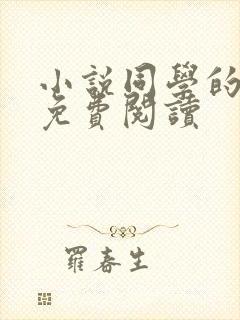 小說同學的
免費閱讀
羅春生